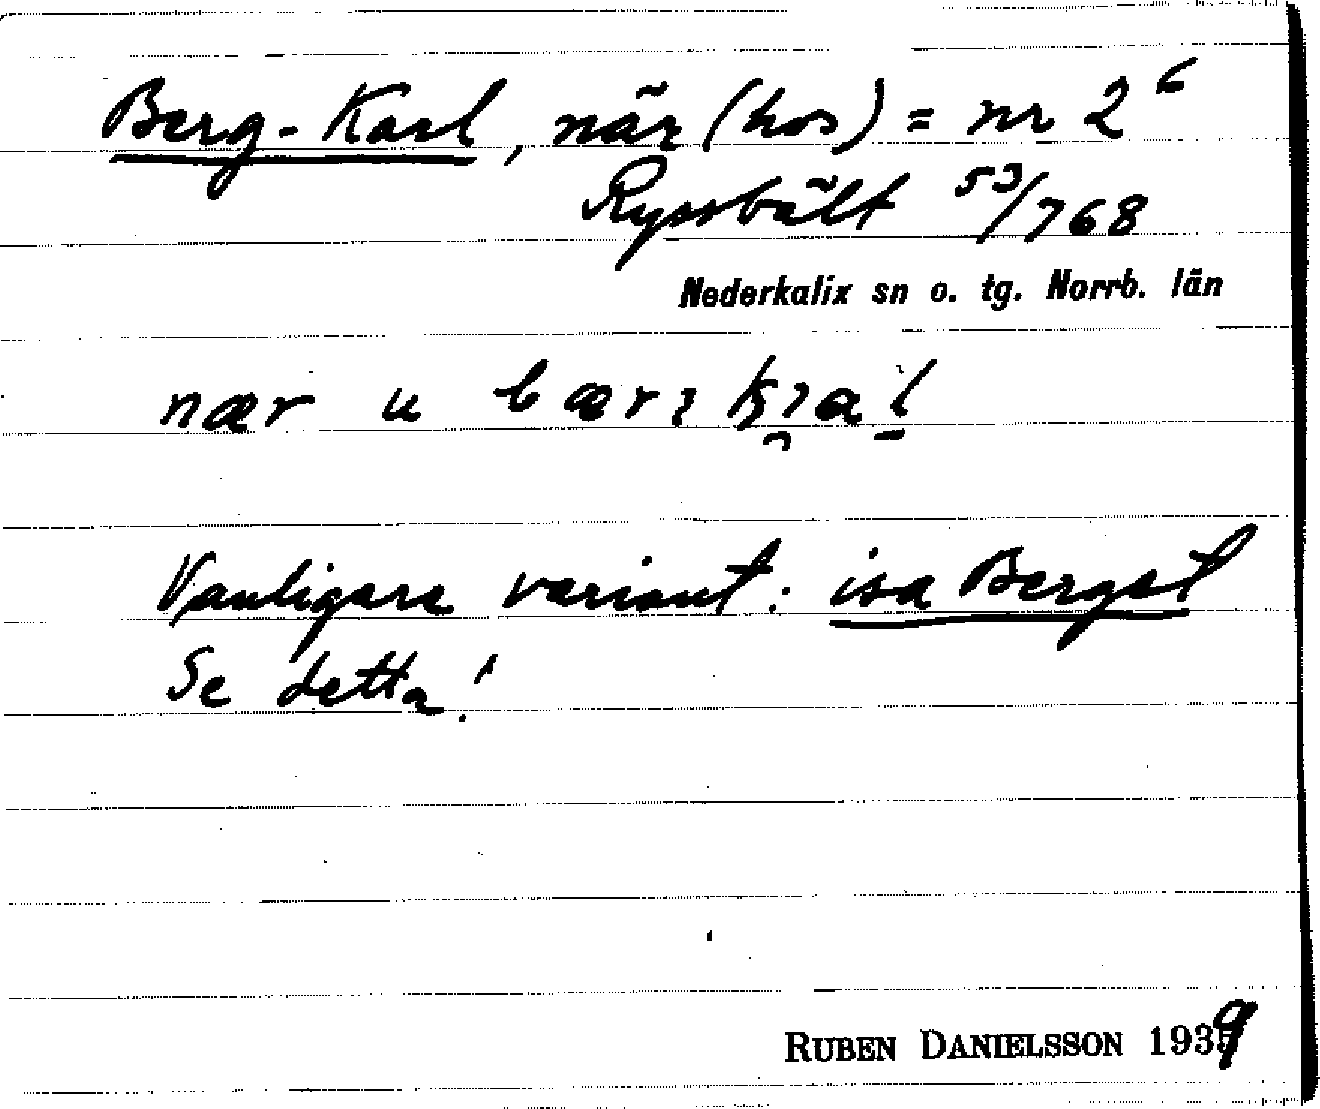 Berg-Karl, när (hos) = nr 2⁶
Ryssbält 53/768
Nederkalix sn o. tg. Norrb. län
nær u
Vanligare variant: isa Berget
Se detta!
RUBEN DANIELSSON 1939